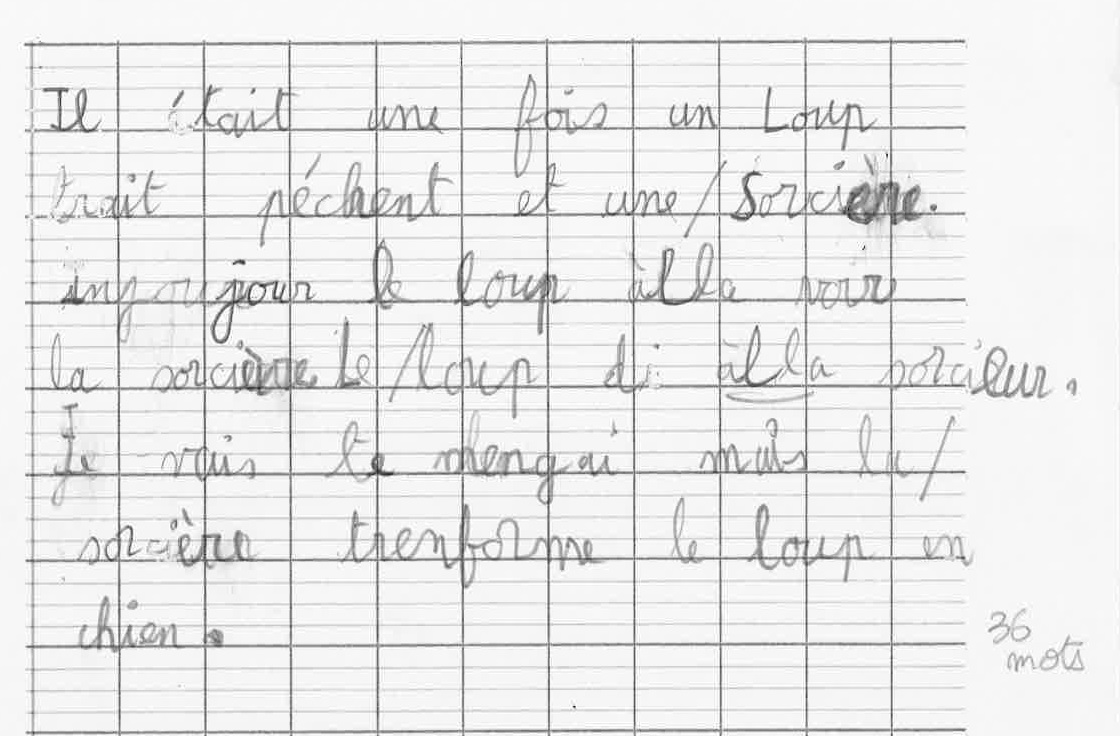 Il était une fois un Loup
trait péchent et une / sorcière.
jour le loup àlla voir
la sorcière Le / loup di àlla sorcieur.
Je vais te mengai mais la /
sorcière trenforme le loup en
chien.
36
mots